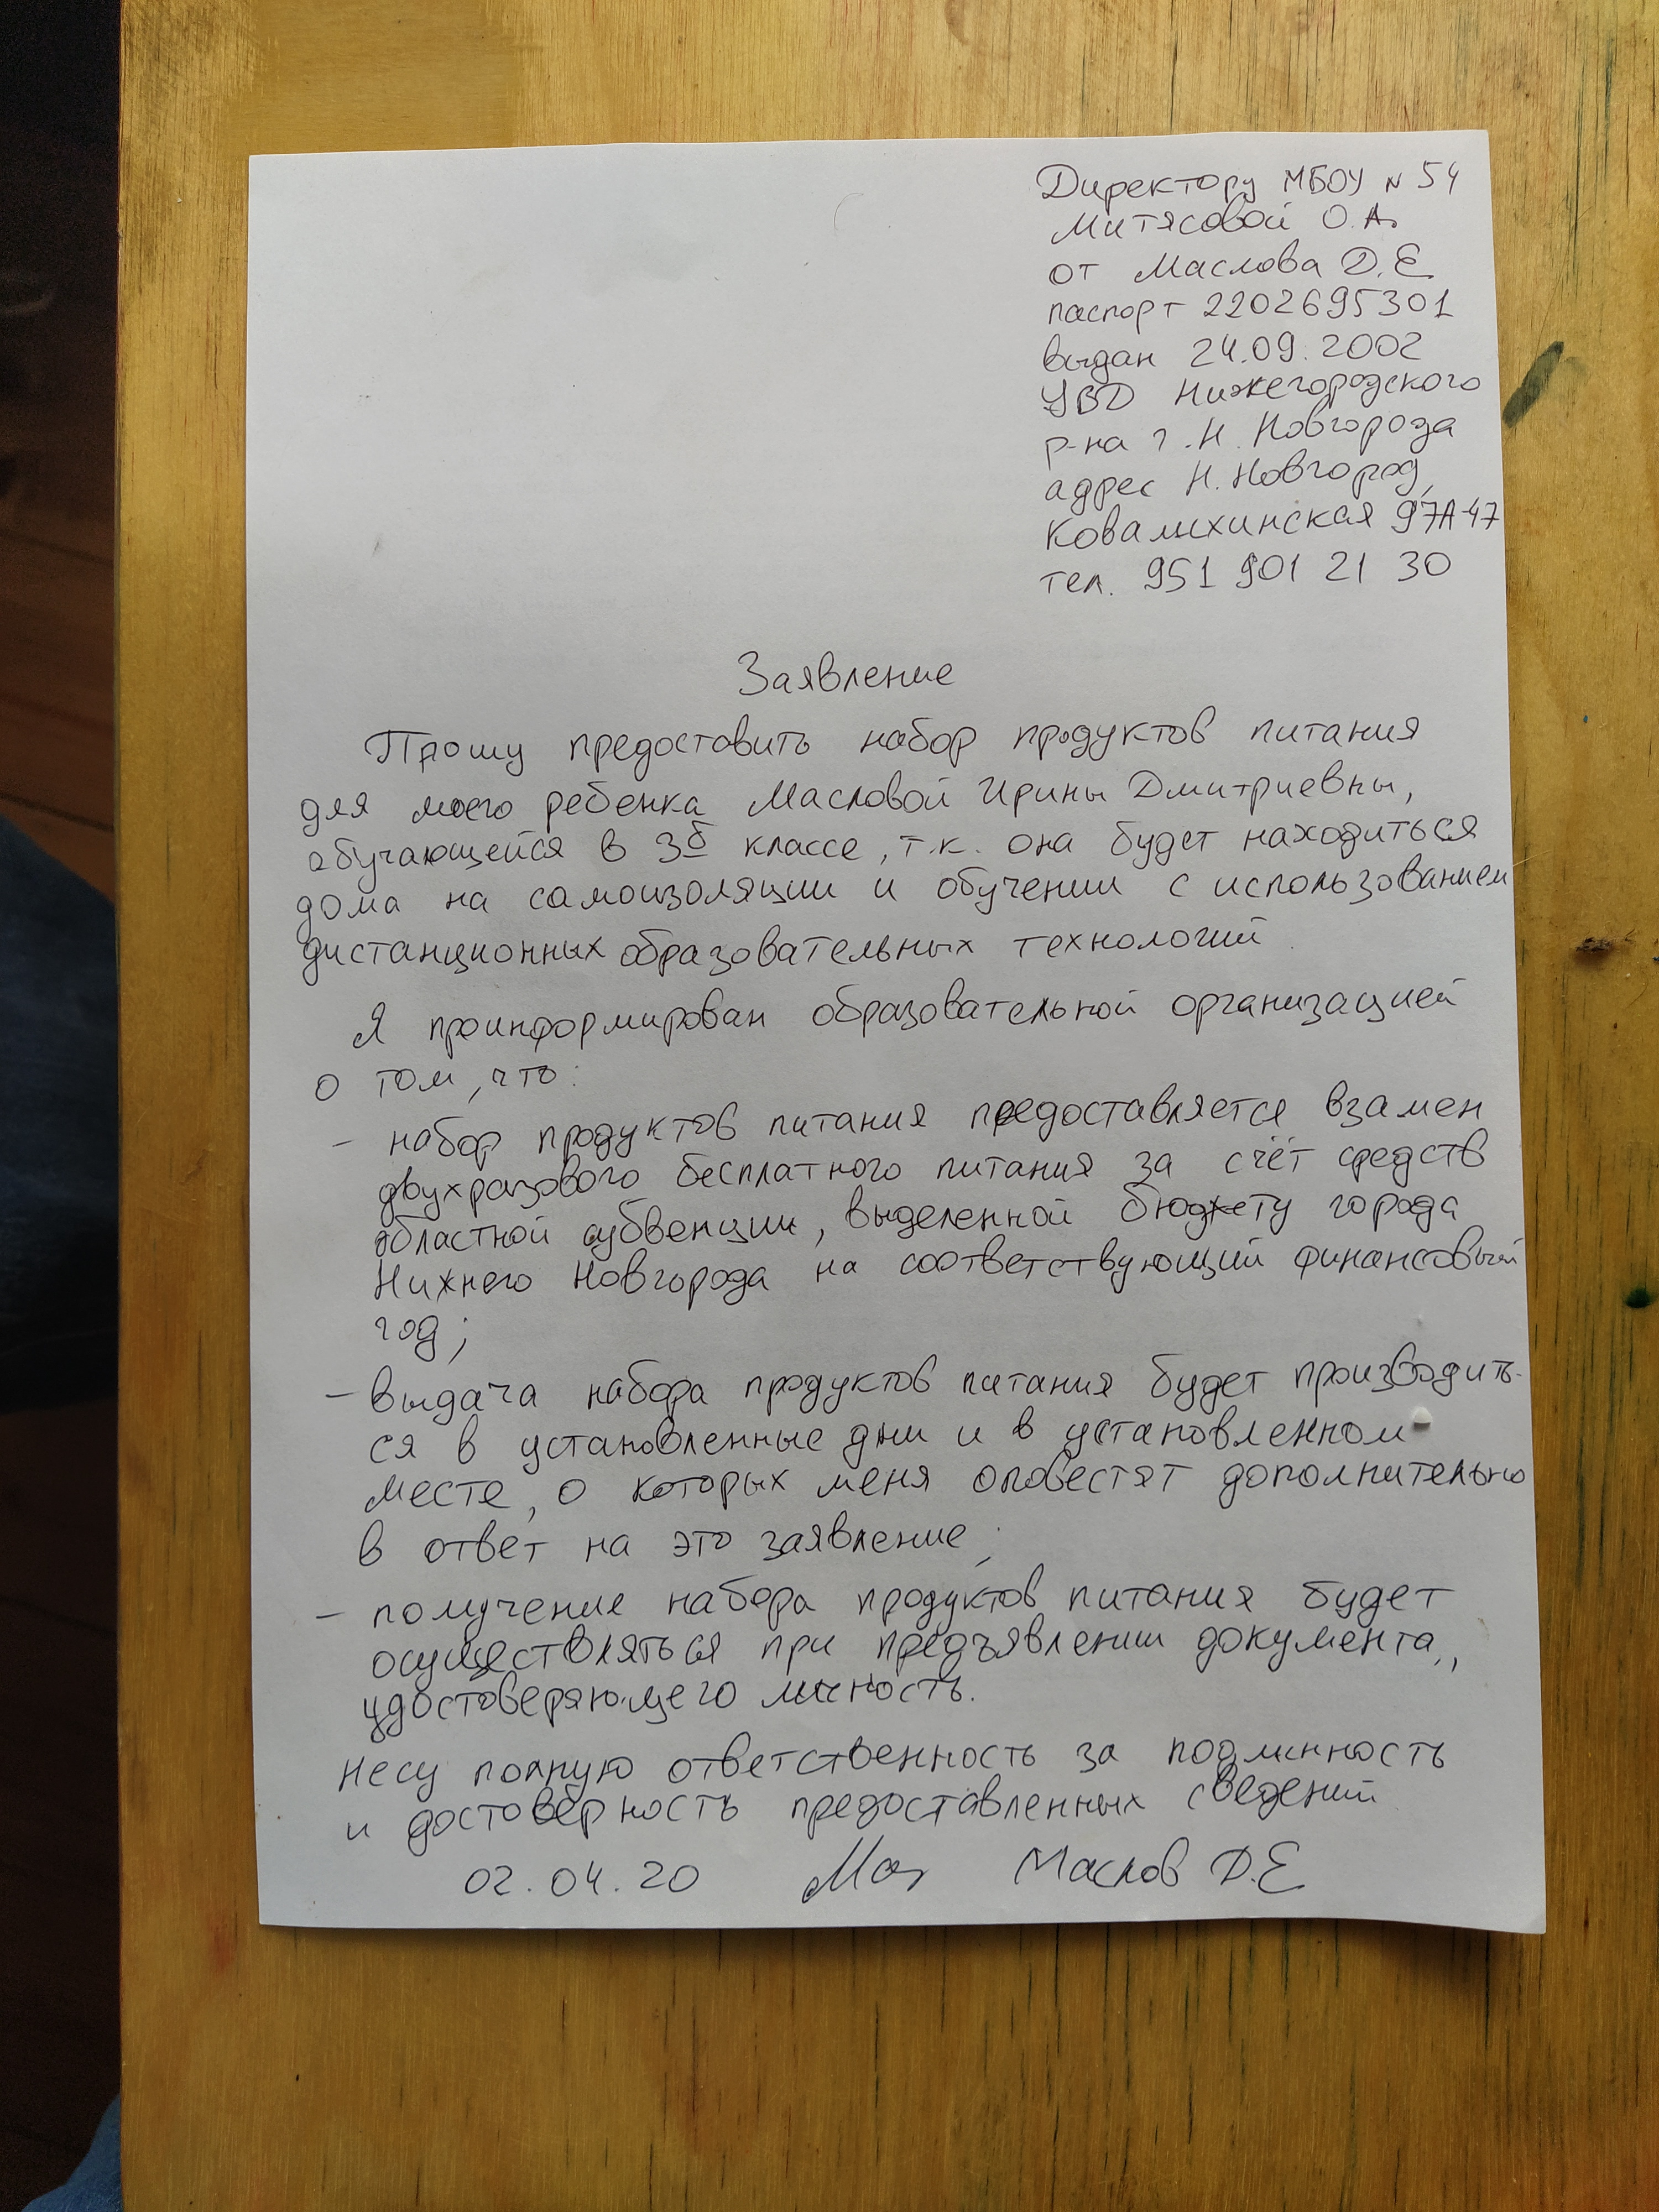 Директору МБОУ N 54
Митясовой О.А.
от Маслова Д.Е
паспорт 2202695301
выдан 24.09.2002
УВД Нижегородского
р-на г.Н.Новгорода
адрес Н.Новгород,
Ковалихинская 97А-47
тел. 951 901 21 30
Заявление
Прошу предоставить набор продуктов питания
для моего ребенка Масловой Ирины Дмитриевны,
обучающейся в 3б классе, т.к. она будет находиться
дома на самоизоляции и обучении с использованием
дистанционных образовательных технологий.
Я проинформирован образовательной организацией
о том, что:
- набор продуктов питания предоставляется взамен
двухразового бесплатного питания за счёт средств
областной субвенции, выделенной бюджету города
Нижнего Новгорода на соответствующий финансовый
год;
- выдача набора продуктов питания будет производить-
ся в установленные дни и в установленном
месте, о которых меня оповестят дополнительно
в ответ на это заявление;
- получение набора продуктов питания будет
осуществляться при предъявлении документа,,
удостоверяющего личность.
Несу полную ответственность за подлинность
и достоверность предоставленных сведений
02.04.20 Мас Маслов Д.Е